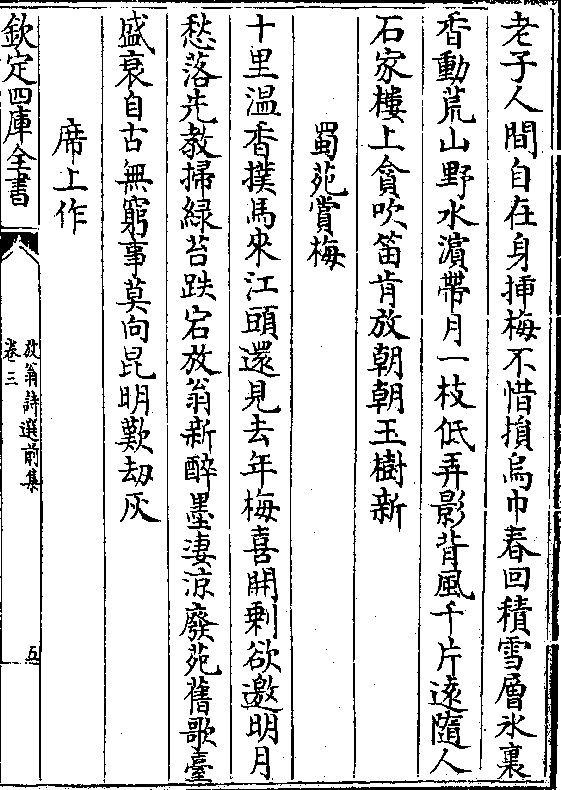 老子人間自在身揷梅不惜損烏巾春回積雪層氷裏
香動荒山野水濵帶月一枝低弄影背風千片逺隨人
石家樓上貪吹笛肯放朝朝玉樹新
蜀苑賞梅
十里温香撲馬來江頭還見去年梅喜開剰欲邀明月
愁落先教掃緑苔跌宕放翁新醉墨凄涼廢苑舊歌臺
盛衰自古無窮事莫向昆明歎刼灰
席上作
欽定四庫全書
放翁詩選前集
卷三
五